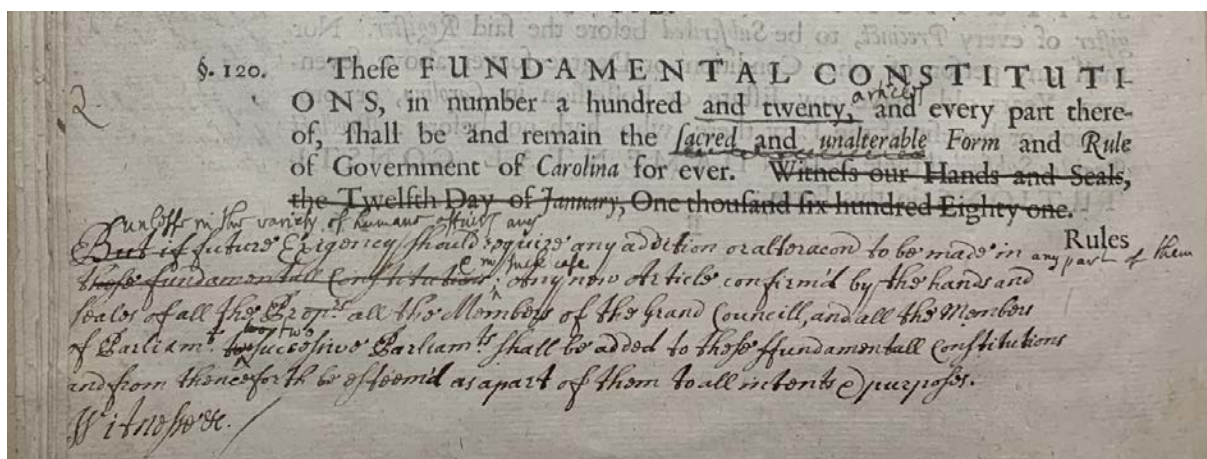 §. 120. Theſe FUNDAMENTAL CONSTITUTI-
2
articles
ONS, in number a hundred and twenty, and every part there-
of, ſhall be and remain the ſacred and unalterable Form and Rule
of Government of Carolina for ever. Witneſs our Hands and Seals,
the Twelfth Day of January, One thouſand ſix hundred Eighty one.
unlesse in the variety of humane affaires any
But if future Exigency should require any addition or alteracon to be made in any part of them
Rules
those fundamentall Constitutions, & in such case Any new Article confirm'd by the hands and
seales of all the Proprs. all the Members of the Grand Councill, and all the Members
of Parliamt. two successive Parliamts. shall be added to these ffundamentall Constitutions
and from thenceforth be esteem'd as a part of them to all intents & purposes.
Witnesse &c.